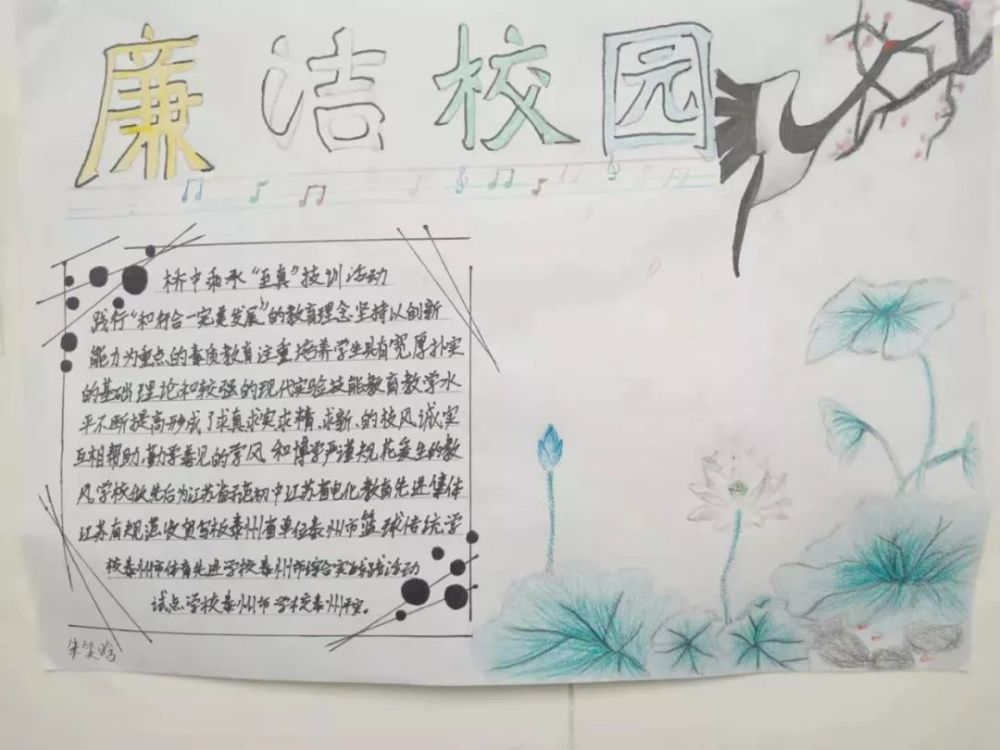 廉洁校园
桥中秉承“至真”校训活动
践行“和行合一完美发展”的教育理念坚持以创新
能力为重点的素质教育注重培养学生具有宽厚扑实
的基础理论和较强的现代实验技能教育教学水
平不断提高形成了求真求实求精、求新、的校风诚实
互相帮助、勤学善见的学风和博学严谨规范爱生的教
风学校做先后为江苏省示范初中江苏省电化教育先进集体
江苏省规范收费泰州省单位泰州市篮球传统学
校泰州市体育先进学校泰州市综合实践活动
试点学校泰州市学校泰州
朱笑晗